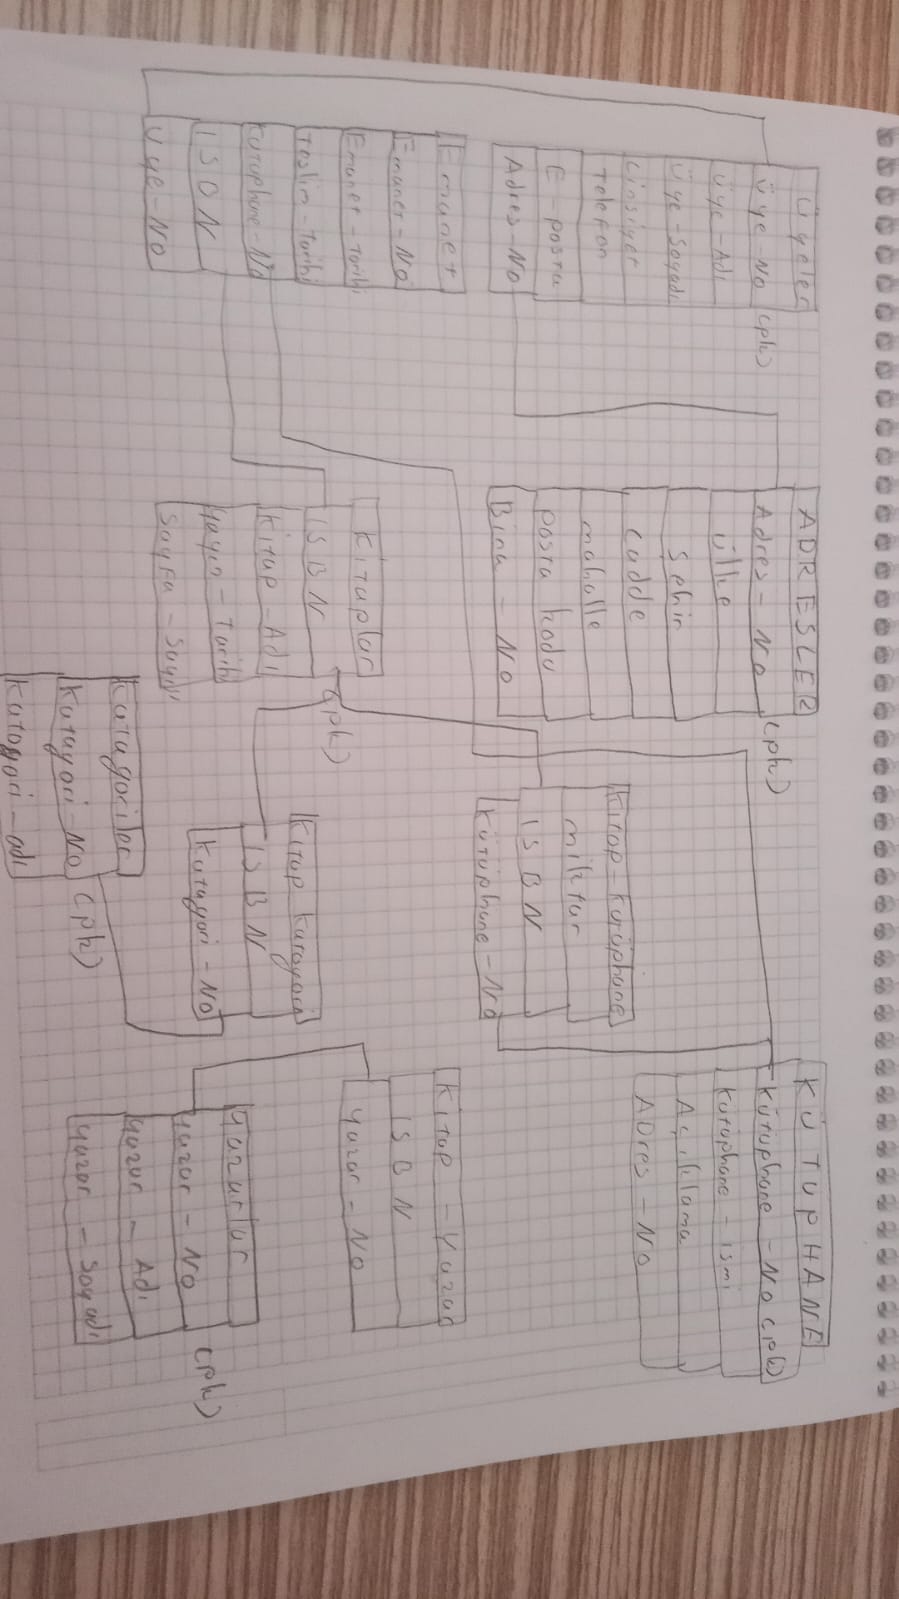 Üyeler
Üye-No (pk)
Üye-Adı
Üye-Soyadı
Cinsiyet
Telefon
E-posta
Adres-No
ADRESLER
Adres-No (pk)
ülke
Şehir
cadde
mahalle
posta kodu
Bina - No
KÜTUPHANE
Kütüphane - No (pk)
Kütüphane - ismi
Açıklama
ADres - No
Kitap-Kütüphane
miktar
ISBN
Kütüphane-No
Emanet
Emanet-No
Emanet-Tarihi
Teslim-Tarihi
Kütüphane-No
ISBN
Üye-No
Kitaplar
ISBN (pk)
Kitap-Adı
Yayın-Tarihi
Sayfa-Sayısı
Kitap Katagori
ISBN
Katagori-No
Kitap-Yazar
ISBN
Yazar-No
Yazarlar
Yazar-No (pk)
Yazar-Adı
Yazar-Soyadı
Katagoriler
Katagori-No (pk)
Katagori-adı